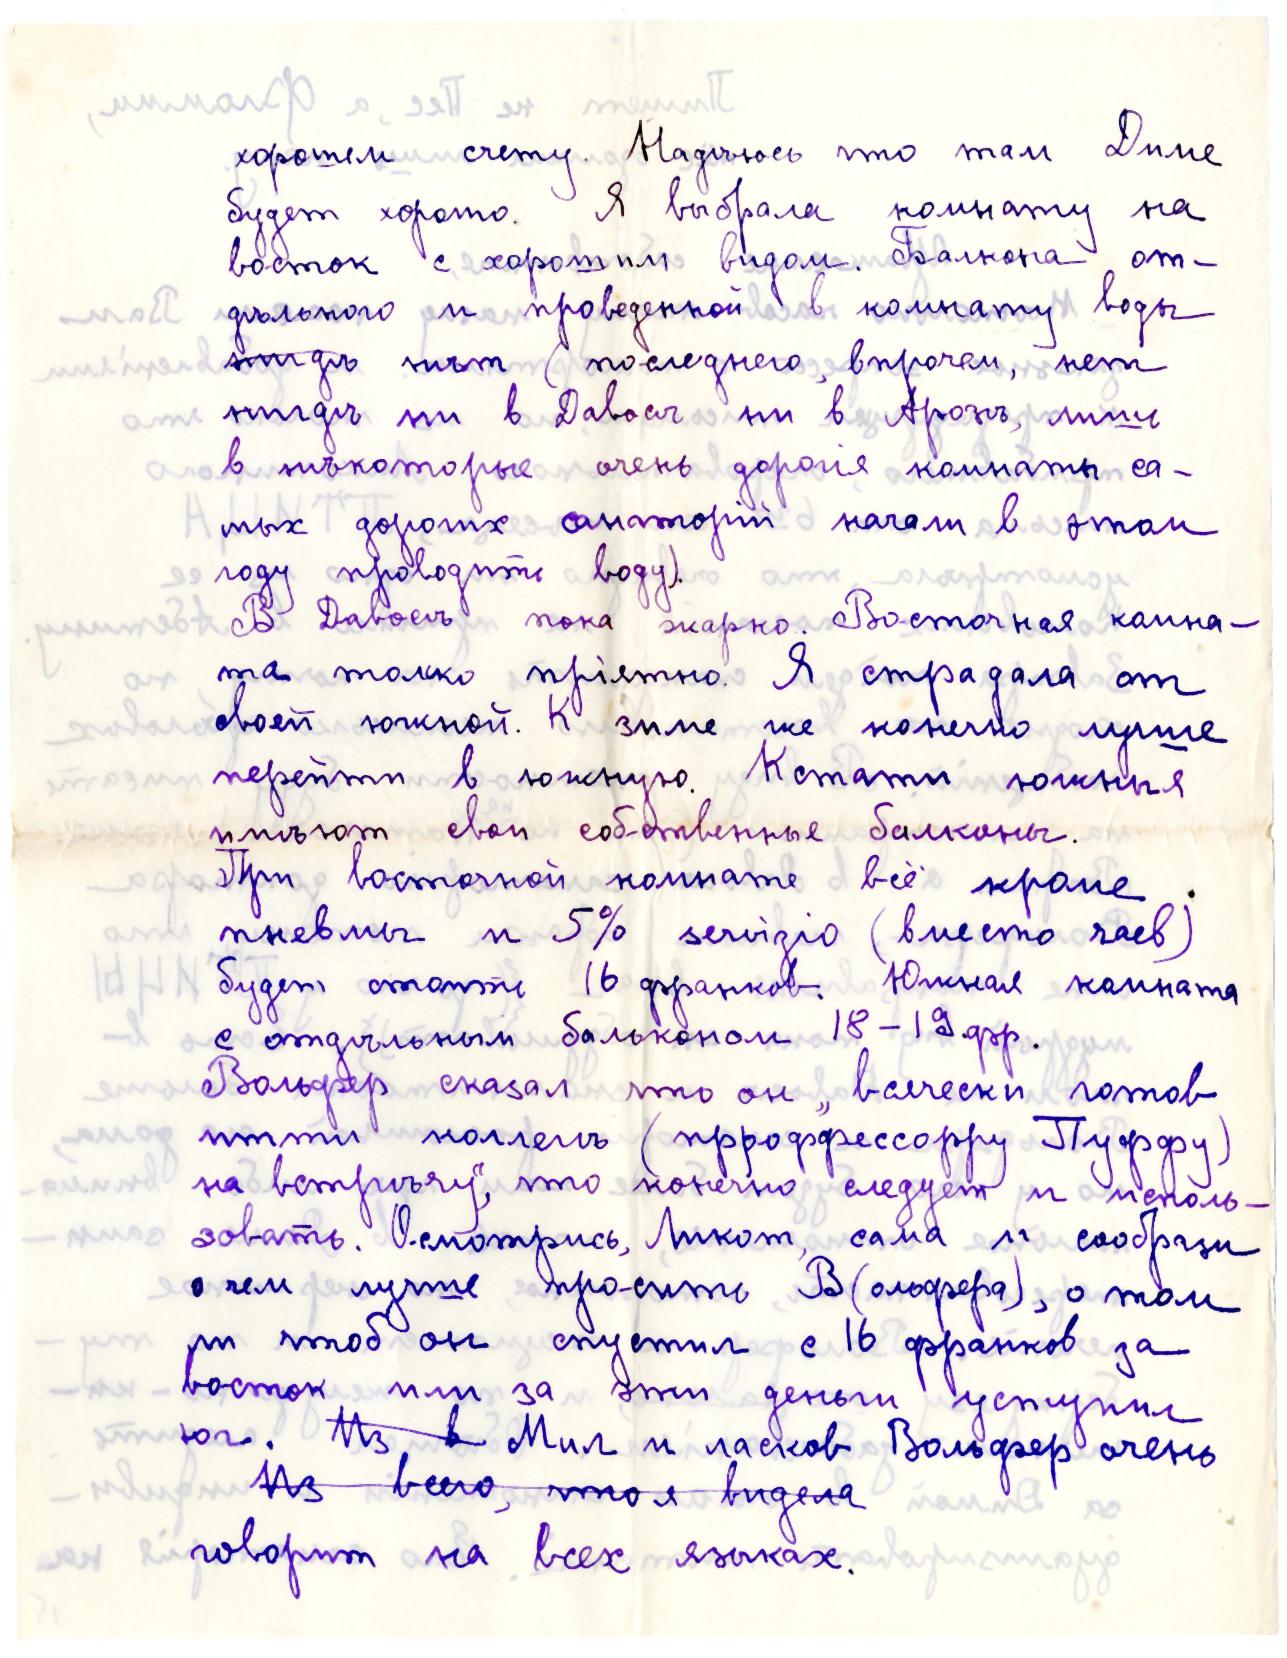 хорошем счету. Надѣюсь что там Диме
будет хорошо. Я выбрала комнату на
восток с хорошим видом. Балкона от-
дѣльного и проведенной в комнату воды
нигдѣ нѣт (последнего, впрочем, нет
нигдѣ ни в Давосѣ ни в Арозѣ, лишь
в нѣкоторые очень дорогія комнаты са-
мых дорогих санаторій начали в этом
году проводить воду).
В Давосѣ пока жарко. Восточная комна-
та только пріятно. Я страдала от
своей южной. К зиме же конечно лучше
перейти в южную. Кстати южныя
имѣют свои собственные балконы.
При восточной комнате всё кроме
пневмы и 5% servizio (вместо чаев)
будет стоить 16 франков. Южная комната
с отдѣльным бальконом 18-19 фр.
Вольфер сказал что он „всячески готов
итти коллегѣ (прроффессорру Пуффу)
на встрѣчу", что конечно следует и исполь-
зовать. Осмотрись, Ликот, сама и сообрази
о чем лучше просить В(ольфера), о том
ли чтоб он спустил с 16 франков за
восток или за эти деньги уступил
юг. Из в Мил и ласков Вольфер очень
Из всего, что я видела
говорит на всех языках.